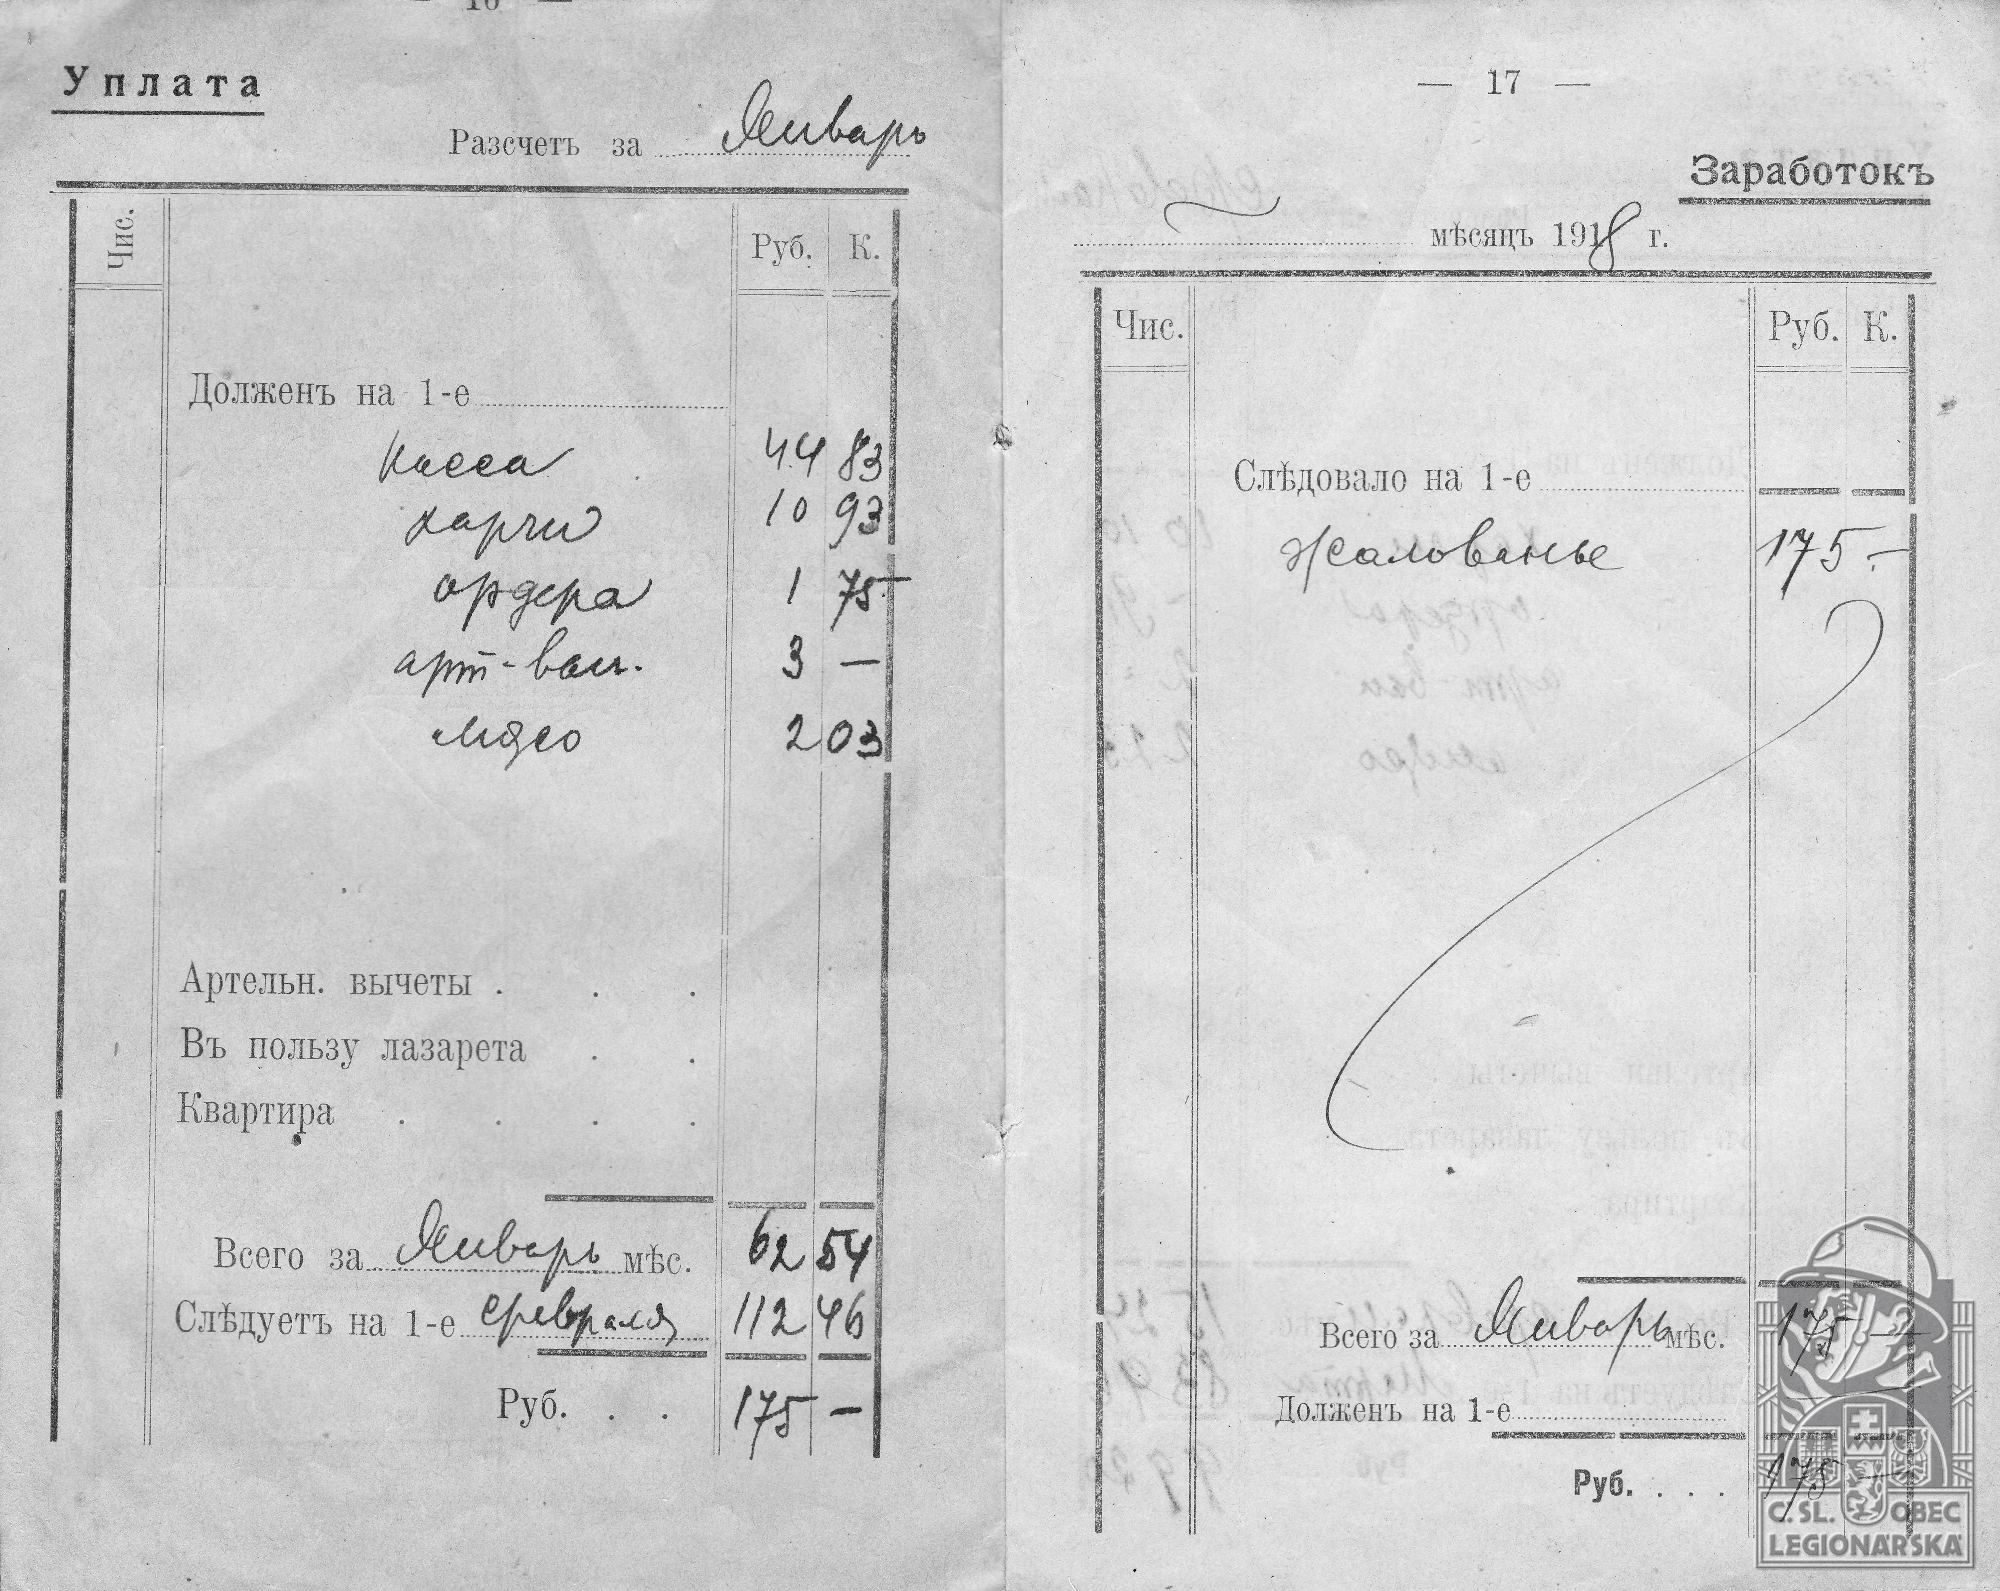 — 16 —
Уплата
Разсчетъ за Январь
Чис.
Руб. К.
Долженъ на 1-е
Касса 44 83
харчи 10 93
ордера 1 75
арт-вач. 3 —
мясо 2 03
Артельн. вычеты . . .
Въ пользу лазарета . .
Квартира . . . .
Всего за Январь мѣс. 62 54
Слѣдуетъ на 1-е февраля 112 46
Руб. . . 175 —
— 17 —
Заработокъ
мѣсяцъ 1918 г.
Чис. Руб. К.
Слѣдовало на 1-е — —
Жалованье 175 —
Всего за Январь мѣс. 175 —
Долженъ на 1-е
Руб. . . . 175 —
Č. SL. OBEC
LEGIONÁŘSKÁ